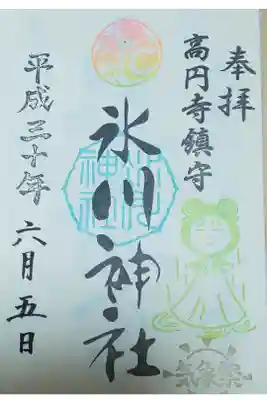 奉拝
高円寺鎮守
氷川神社
平成三十年 六月五日
氷川神社
気象祭